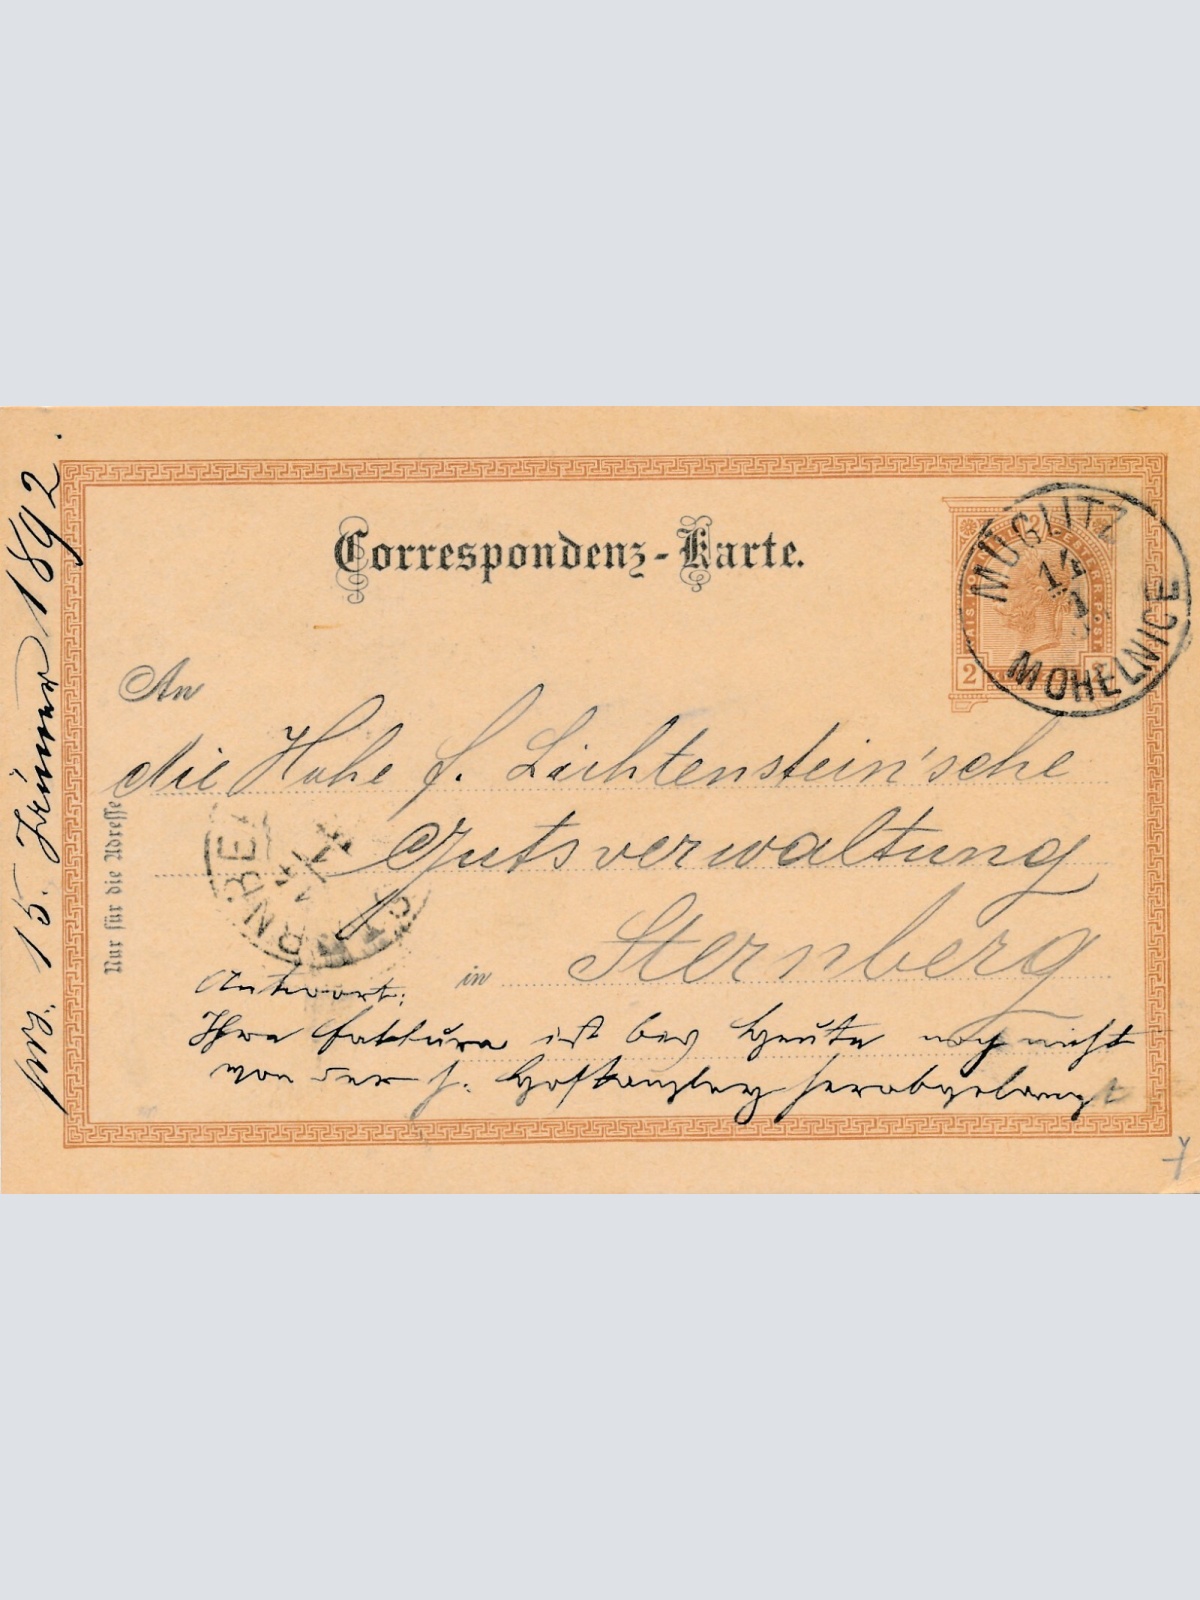 Correspondenz-Karte.
MÜGLITZ
14
1
MOHELNICE
2
An
die Hohe f. Lichtenstein'sche
Gutsverwaltung
in Sternberg
Nur für die Adresse
STERNBERG
Antwort:
Ihre Faktura ist bis heute noch nicht
von der f. Hofkanzley herabgelangt
prs. 15. Jänner 1892.
7